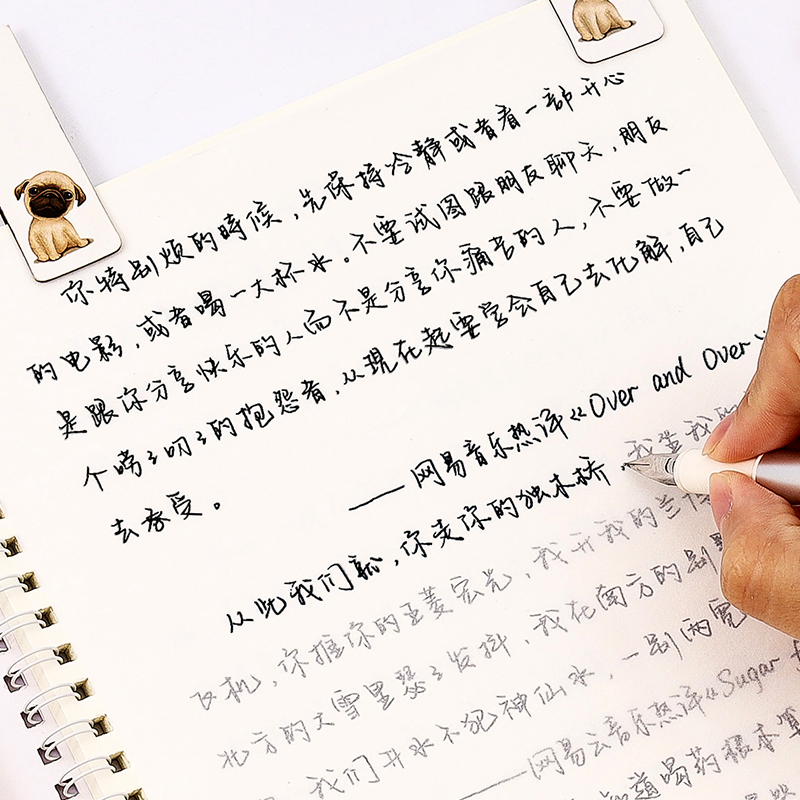 你特别烦的時候，先保持冷静或者看一部开心
的电影，或者喝一大杯水。不要试图跟朋友聊天，朋友
是跟你分享快乐的人而不是分享你痛苦的人，不要做一
个唠叨的抱怨者，从現在起要学会自己去化解，自己
去承受。
——网易音乐热评《Over and Over
从此我们就，你走你的独木桥，我坐我的
我开我的兰
反机，你推你的五菱宏光，我在南方的
北方的大雪里瑟瑟发抖，一别两宽
我们井水不犯神仙水，
——网易云音乐热评《Sugar
知道喝药根本算